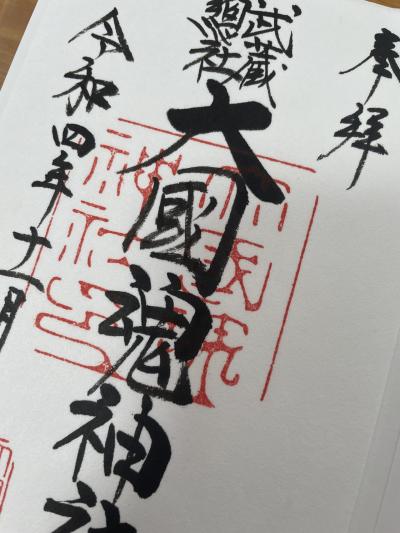 奉拝
武蔵
總社
大國魂神社
令和四年十一月